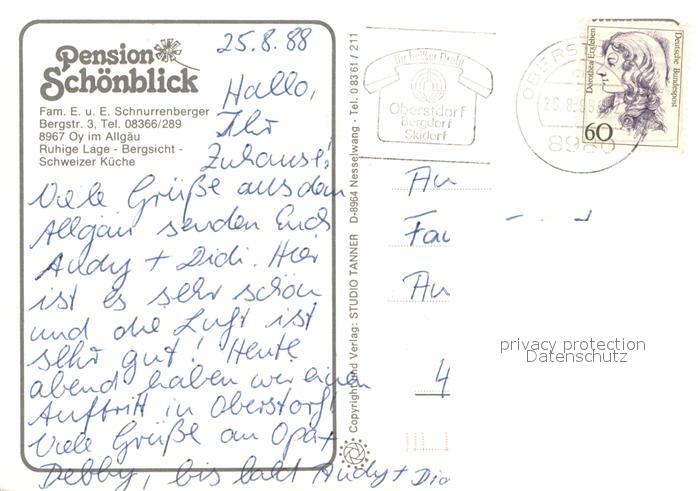 25.8.88
Pension
Schönblick
Fam. E. u. E. Schnurrenberger
Bergstr. 3, Tel. 08366/289
8967 Oy im Allgäu
Ruhige Lage - Bergsicht -
Schweizer Küche
Hallo,
Ihr
Zuhause!
Viele Grüße aus dem
Allgäu senden Euch
Andy + Didi. Hier
ist es sehr schön
und die Luft ist
sehr gut! Heute
abend haben wir einen
Auftritt in Oberstorf!
Viele Grüße an Opa +
Debby, bis bald Andy + Did
Copyright und Verlag: STUDIO TANNER D-8964 Nesselwang · Tel. 0 83 61 / 211
Ihr heißer Draht
Oberstdorf
Bergdorf
Skidorf
OBERS
8980
Dorothea Erxleben
Deutsche Bundespost
60
An
Fa
An
4
privacy protection
Datenschutz